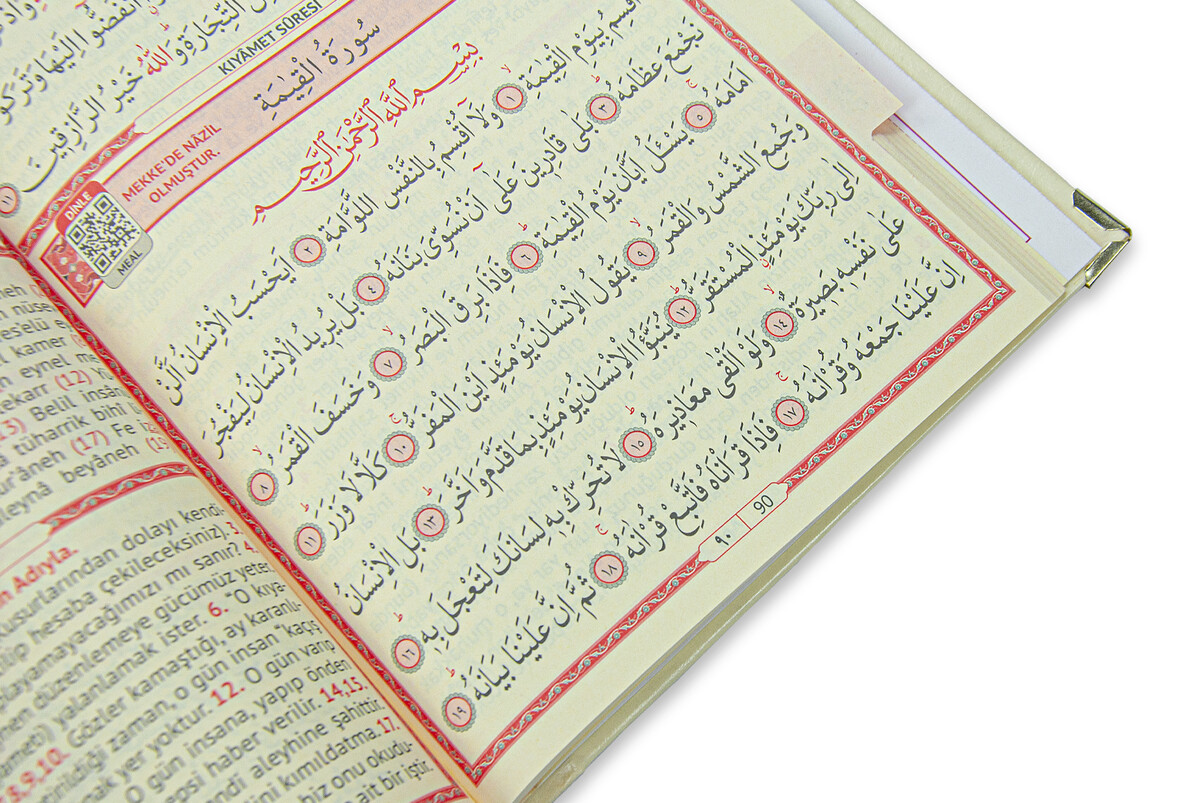 انْفَضُّوا اِلَيْهَا وَتَرَكُو
التِّجَارَةِ وَاللّٰهُ خَيْرُ الرَّازِقِينَ ١١
KIYÂMET SÛRESİ
سُورَةُ الْقِيٰمَةِ
MEKKE'DE NÂZİL
OLMUŞTUR.
DİNLE
MEAL
بِسْمِ اللّٰهِ الرَّحْمٰنِ الرَّحِيمِ
اُقْسِمُ بِيَوْمِ الْقِيٰمَةِ ١ وَلَا اُقْسِمُ بِالنَّفْسِ اللَّوَّامَةِ ٢ اَيَحْسَبُ الْاِنْسَانُ اَلَّنْ
نَجْمَعَ عِظَامَهُ ٣ بَلٰى قَادِرِينَ عَلٰٓى اَنْ نُسَوِّىَ بَنَانَهُ ٤ بَلْ يُرِيدُ الْاِنْسَانُ لِيَفْجُرَ
اَمَامَهُ ٥ يَسْـَٔلُ اَيَّانَ يَوْمُ الْقِيٰمَةِ ٦ فَاِذَا بَرِقَ الْبَصَرُ ٧ وَخَسَفَ الْقَمَرُ ٨
وَجُمِعَ الشَّمْسُ وَالْقَمَرُ ٩ يَقُولُ الْاِنْسَانُ يَوْمَئِذٍ اَيْنَ الْمَفَرُّ ١٠ كَلَّا لَا وَزَرَ ١١
اِلٰى رَبِّكَ يَوْمَئِذٍ الْمُسْتَقَرُّ ١٢ يُنَبَّؤُا الْاِنْسَانُ يَوْمَئِذٍ بِمَا قَدَّمَ وَاَخَّرَ ١٣ بَلِ الْاِنْسَانُ
عَلٰى نَفْسِهِ بَصِيرَةٌ ١٤ وَلَوْ اَلْقٰى مَعَاذِيرَهُ ١٥ لَا تُحَرِّكْ بِهِ لِسَانَكَ لِتَعْجَلَ بِهِ ١٦
اِنَّ عَلَيْنَا جَمْعَهُ وَقُرْاٰنَهُ ١٧ فَاِذَا قَرَاْنَاهُ فَاتَّبِعْ قُرْاٰنَهُ ١٨ ثُمَّ اِنَّ عَلَيْنَا بَيَانَهُ ١٩
٩٠ 90
kamer
eynel
(12)
(13) Belil insân
tüharrik bihî
(17) Fe
beyâneh
Adıyla.
kusurlarından dolayı kendi-
hesaba çekileceksiniz). 3.
toplayamayacağımızı mı sanır? 4.
düzenlemeye gücümüz yeter.
yalanlamak ister. 6. "O kıya-
8,9,10. Gözler kamaştığı, ay karanlı-
zaman, o gün insan "kaçış
yer yoktur. 12. O gün varıp
O gün insana, yapıp önden
haber verilir. 14,15.
kendi aleyhine şahittir.
kımıldatma. 17.
biz onu okudu-
ait bir iştir.